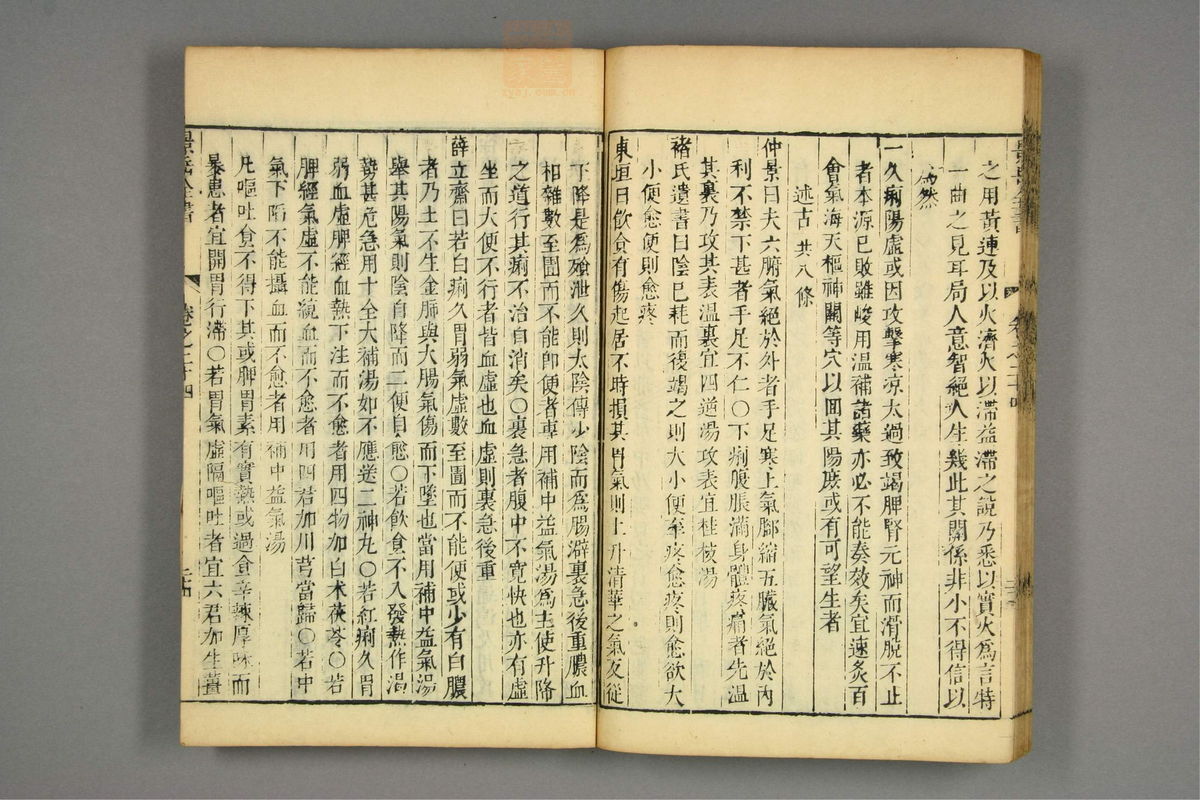 之用黃連及以火濟火以滯益滯之說乃悉以實火爲言特
一曲之見耳局人意智絕人生幾此其關係非小不得信以
爲然
一久痢陽虛或因攻擊寒涼太過致竭脾腎元神而滑脫不止
者本源已敗雖峻用溫補諸藥亦必不能奏效矣宜速灸百
會氣海天樞神闕等穴以回其陽庶或有可望生者
述古 共八條
仲景曰夫六腑氣絕於外者手足寒上氣脚縮五臟氣絕於內
利不禁下甚者手足不仁〇下痢腹脹滿身體疼痛者先溫
其裏乃攻其表溫裏宜四逆湯攻表宜桂枝湯
褚氏遺書曰陰已耗而復竭之則大小便牽疼愈疼則愈欲大
小便愈便則愈疼
東垣曰飲食有傷起居不時損其胃氣則上升清華之氣反從
下降是爲飱泄久則太陰傳少陰而爲腸澼裏急後重膿血
相雜數至圊而不能卽便者專用補中益氣湯爲主使升降
之道行其痢不治自消矣〇裏急者腹中不寬快也亦有虛
坐而大便不行者皆血虛也血虛則裏急後重
薛立齋曰若白痢久胃弱氣虛數至圊而不能便或少有白膿
者乃土不生金肺與大腸氣傷而下墜也當用補中益氣湯
舉其陽氣則陰自降而二便自愈〇若飲食不入發熱作渴
勢甚危急用十全大補湯如不應送二神丸〇若紅痢久胃
弱血虛脾經血熱下注而不愈者用四物加白朮茯苓〇若
脾經氣虛不能統血而不愈者用四君加川芎當歸〇若中
氣下陷不能攝血而不愈者用補中益氣湯
凡嘔吐食不得下其或脾胃素有實熱或過食辛辣厚味而
暴患者宜開胃行滯〇若胃氣虛隔嘔吐者宜六君加生薑
景岳全書
卷之二十四